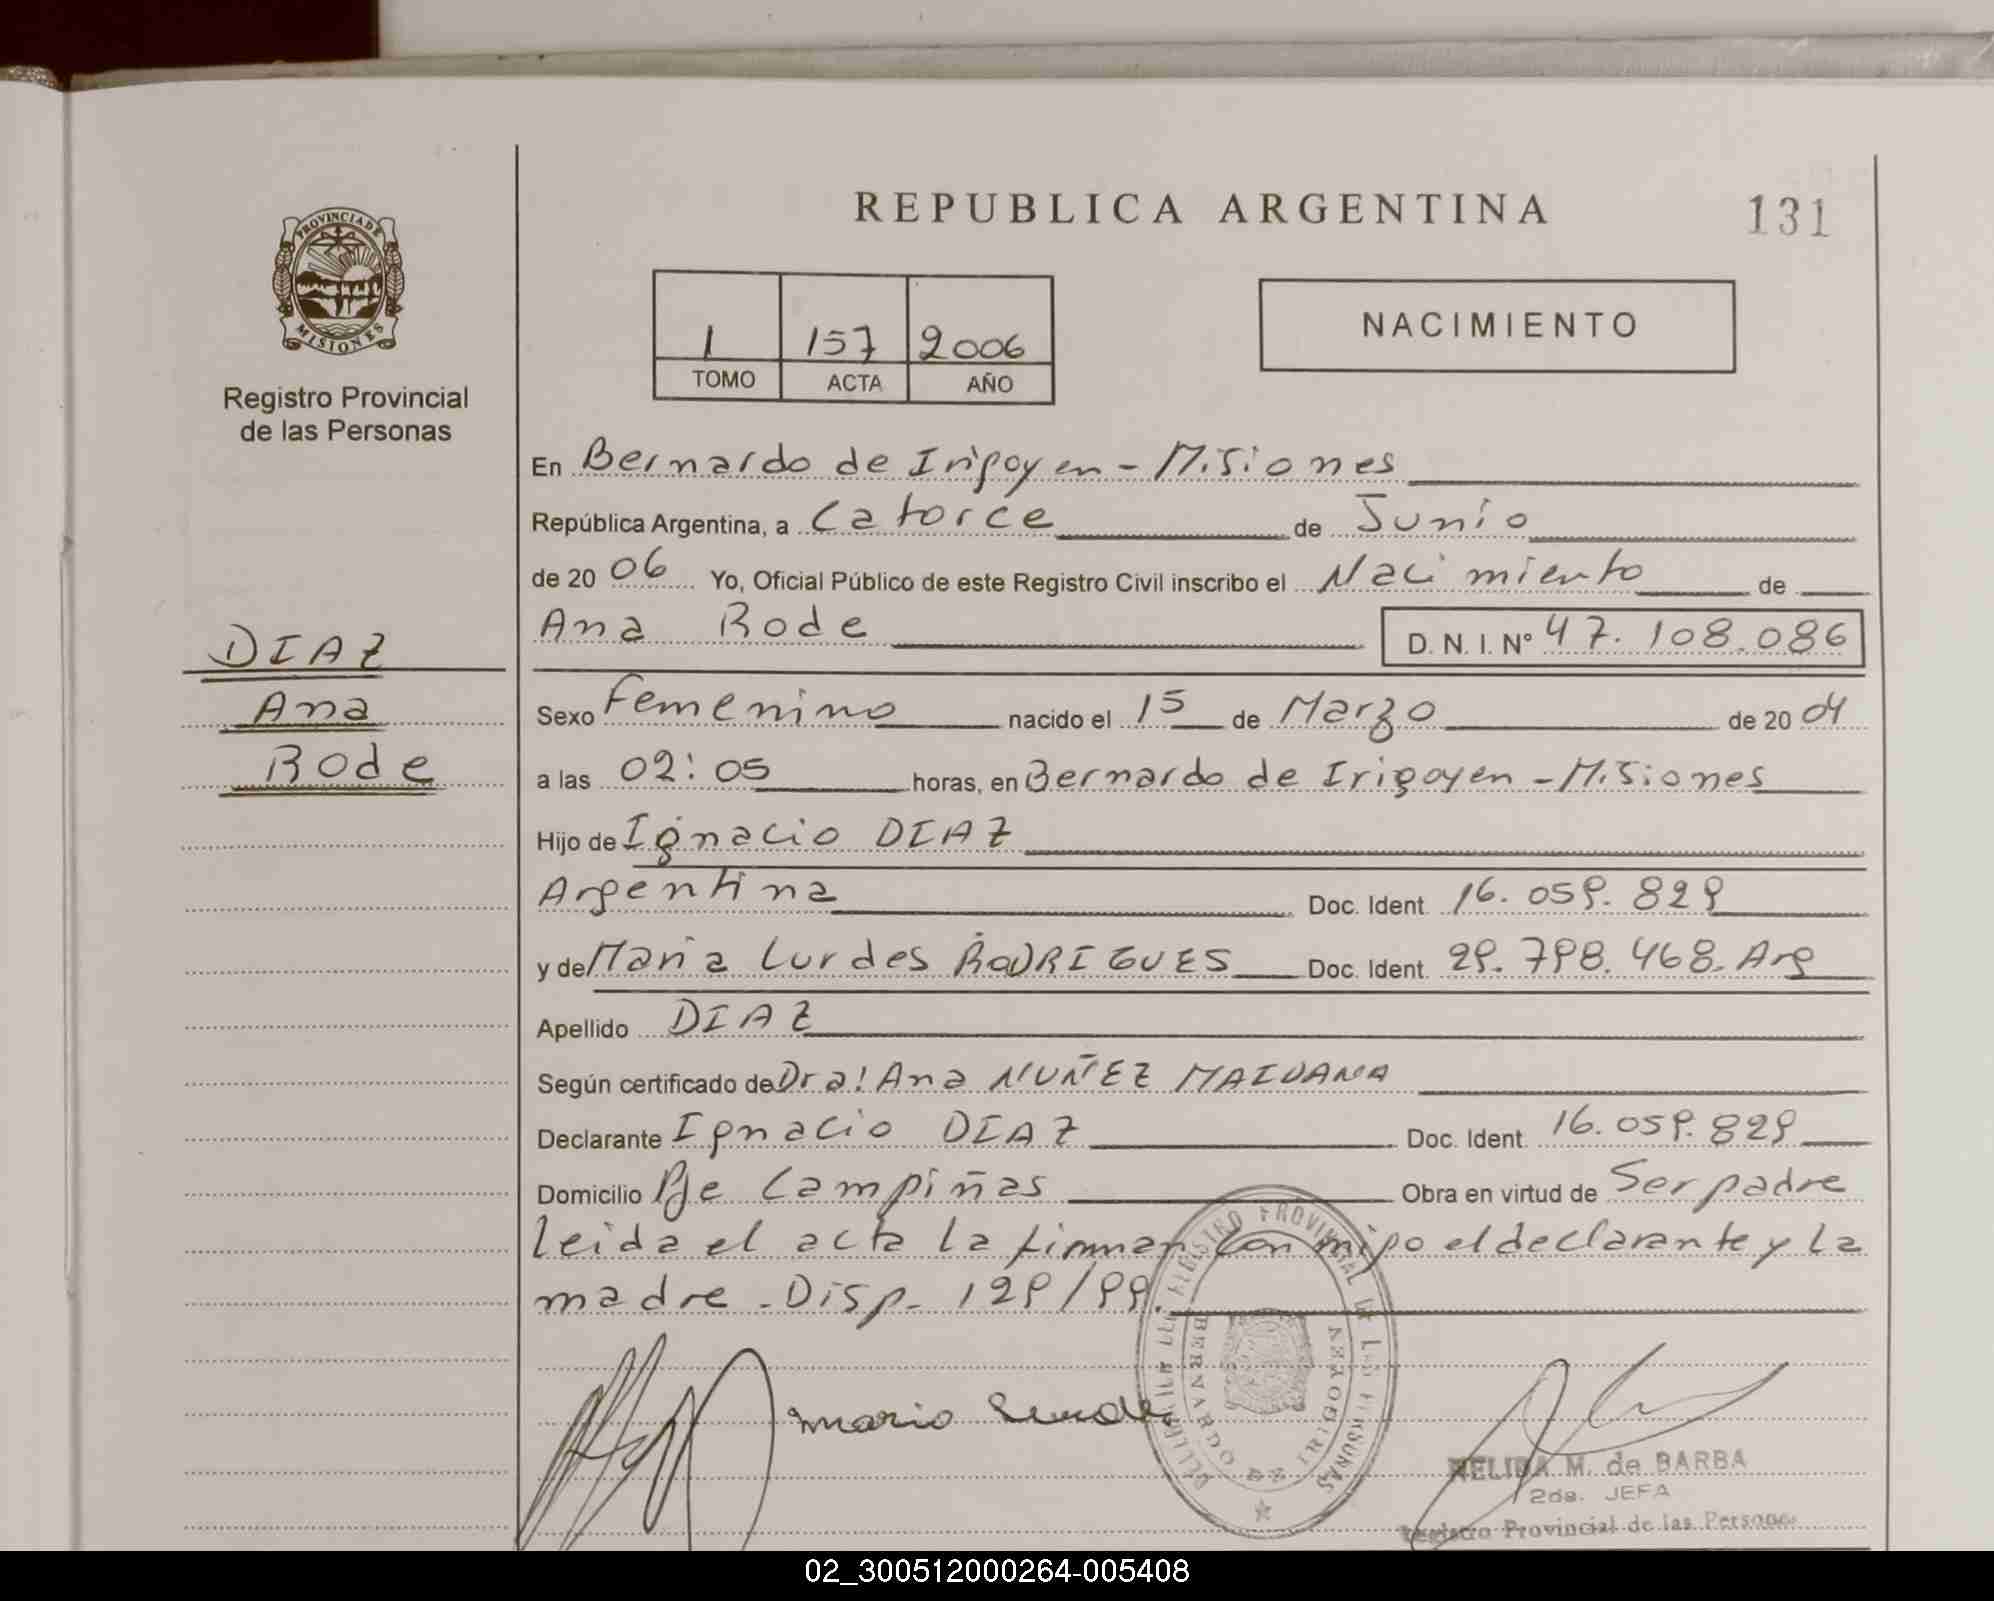 REPUBLICA ARGENTINA
131
PROVINCIA DE
MISIONES
Registro Provincial
de las Personas
1 157 2006
TOMO ACTA AÑO
NACIMIENTO
En Bernardo de Irigoyen - Misiones
República Argentina, a Catorce de Junio
de 20 06 Yo, Oficial Público de este Registro Civil inscribo el Nacimiento de
Ana Rode D. N. I. Nº 47.108.086
DIAZ
Ana
Rode
Sexo Femenino nacido el 15 de Marzo de 20 04
a las 02:05 horas, en Bernardo de Irigoyen - Misiones
Hijo de Ignacio DIAZ
Argentina Doc. Ident 16.059.829
y de Maria Lurdes RODRIGUES Doc. Ident 29.798.468. Arg
Apellido DIAZ
Según certificado de Dra! Ana NUÑEZ MAIDANA
Declarante Ignacio DIAZ Doc. Ident 16.059.829
Domicilio Pje Campiñas Obra en virtud de Ser padre
leida el acta la firman con migo el declarante y la
madre - Disp. 129/99.
REGISTRO PROVINCIAL DE LAS PERSONAS
BERNARDO DE IRIGOYEN
mario
NELIDA M. de BARBA
2da. JEFA
Registro Provincial de las Personas
02_300512000264-005408